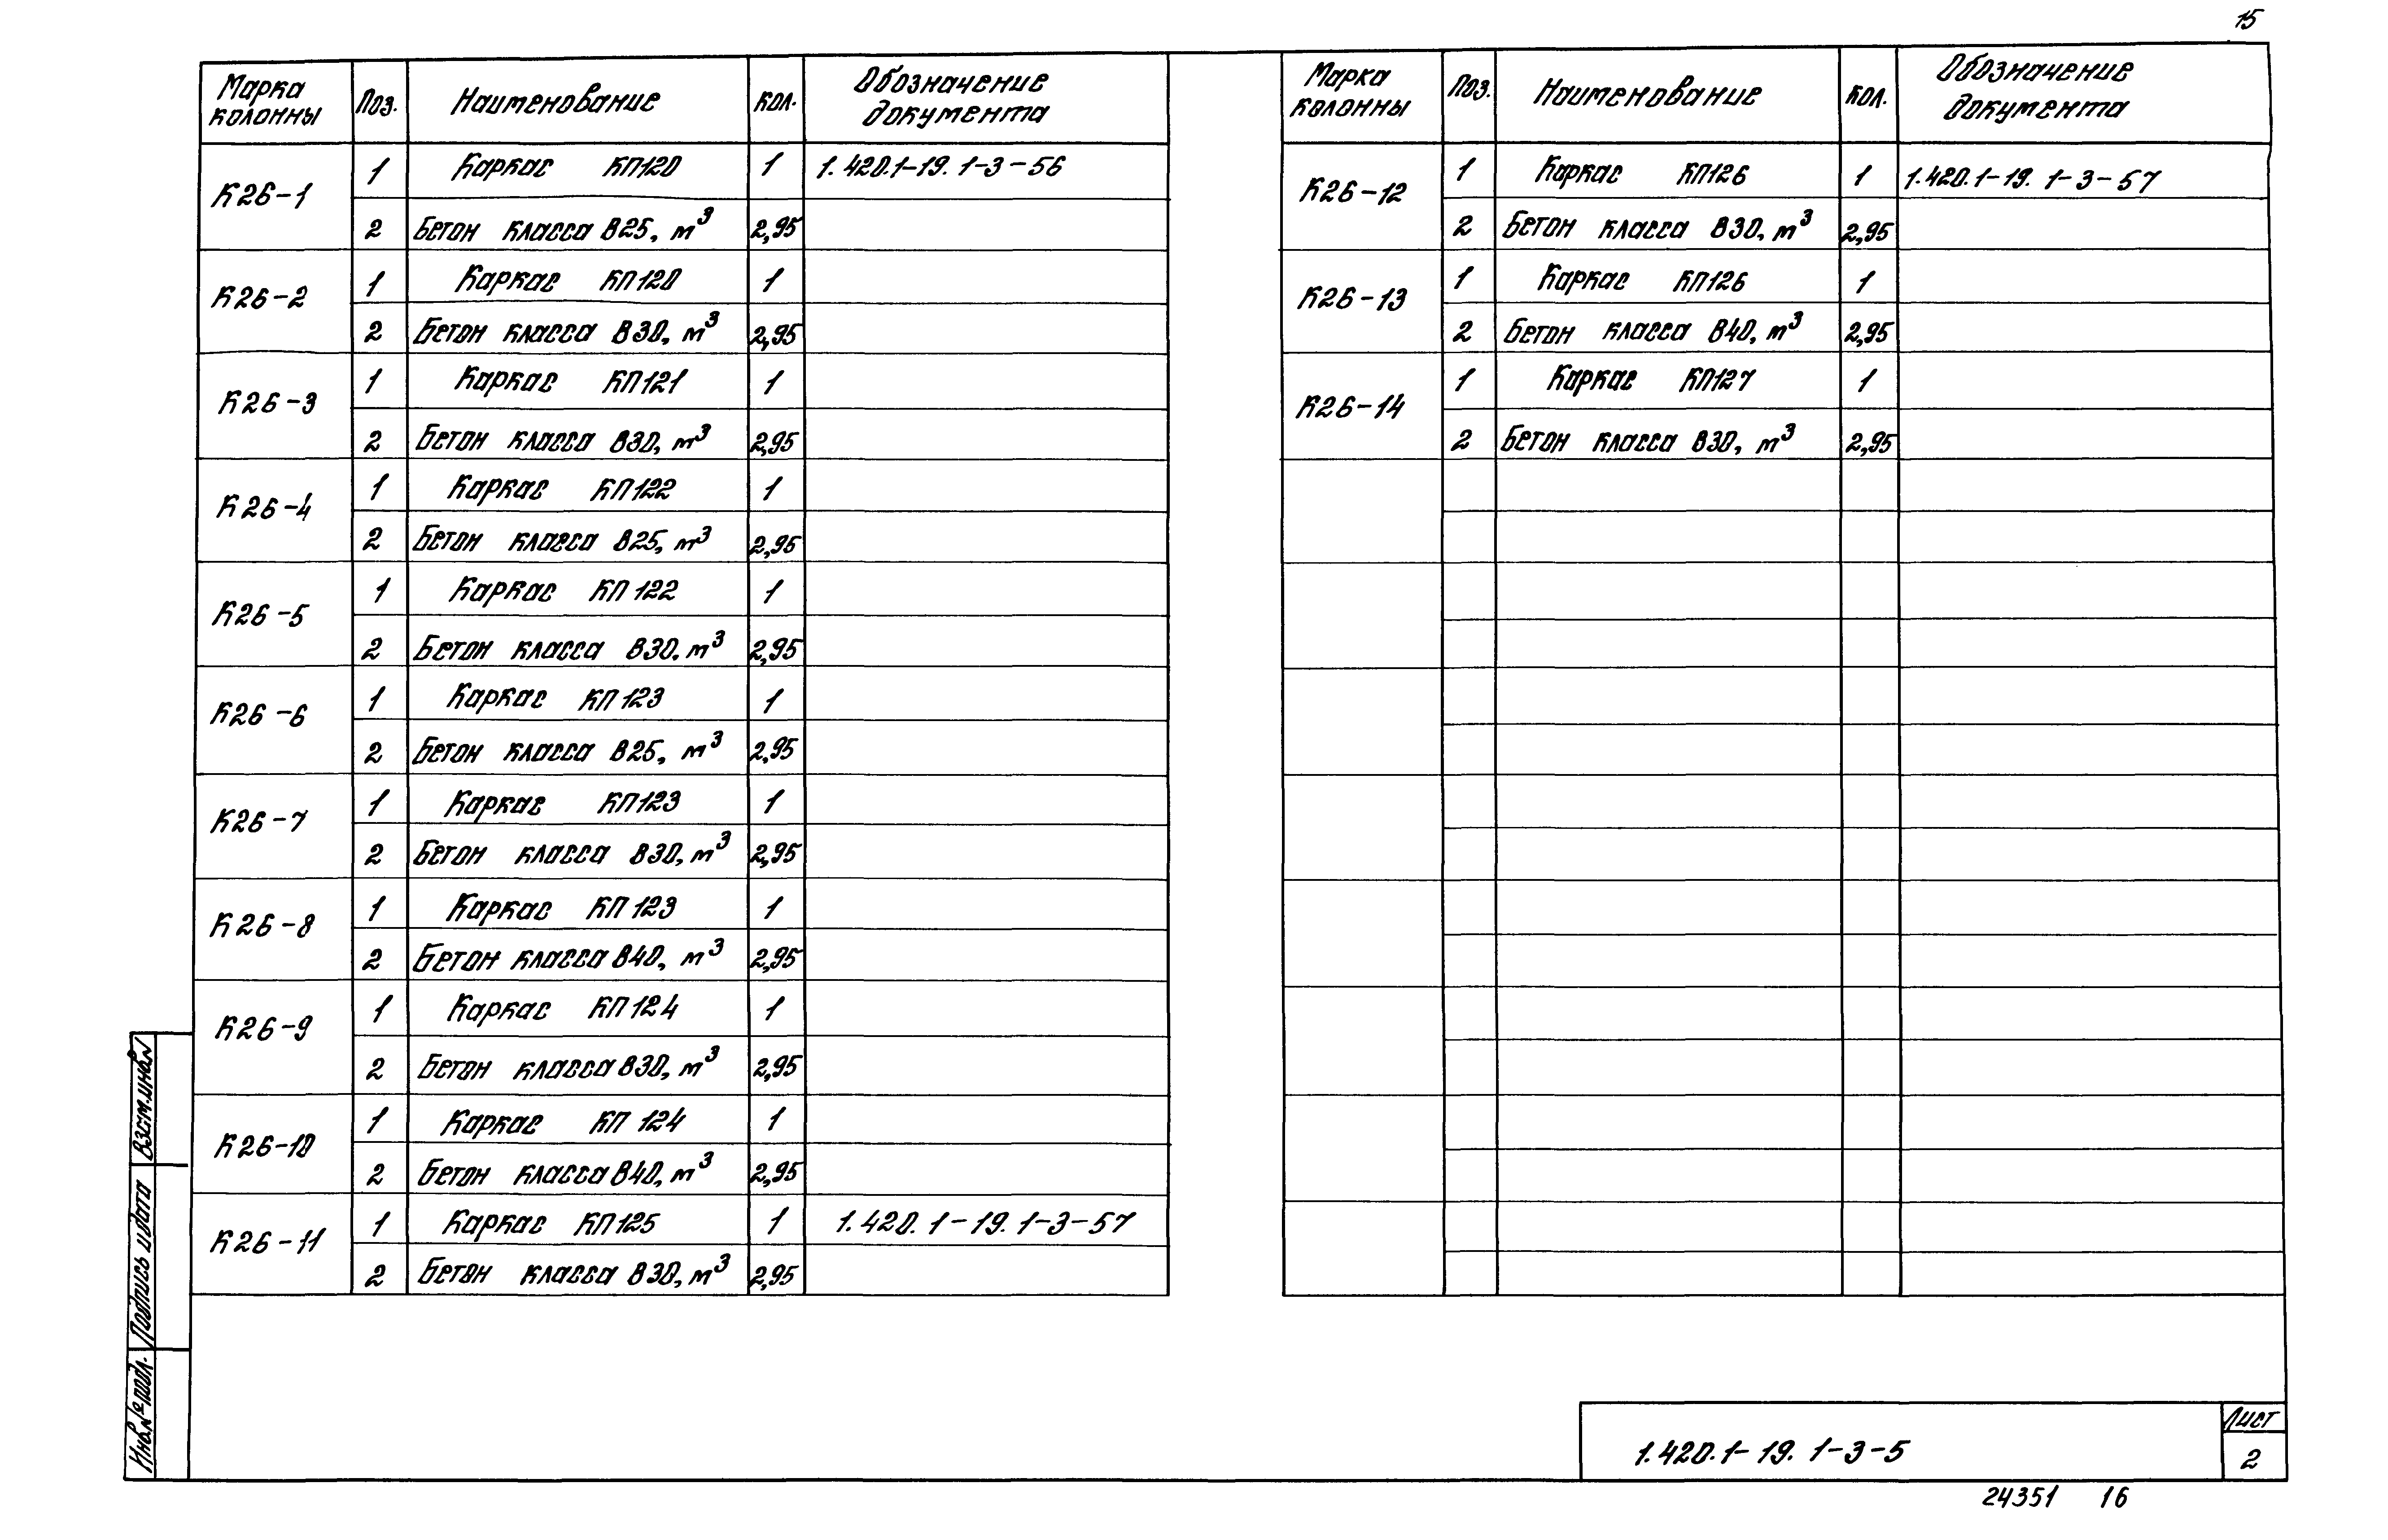 15
Марка колонны Поз. Наименование Кол. Обозначение документа
К26-1 1 Каркас КП120 1 1.420.1-19.1-3-56
2 Бетон класса В25, м³ 2,95
К26-2 1 Каркас КП120 1
2 Бетон класса В30, м³ 2,95
К26-3 1 Каркас КП121 1
2 Бетон класса В30, м³ 2,95
К26-4 1 Каркас КП122 1
2 Бетон класса В25, м³ 2,95
К26-5 1 Каркас КП122 1
2 Бетон класса В30, м³ 2,95
К26-6 1 Каркас КП123 1
2 Бетон класса В25, м³ 2,95
К26-7 1 Каркас КП123 1
2 Бетон класса В30, м³ 2,95
К26-8 1 Каркас КП123 1
2 Бетон класса В40, м³ 2,95
К26-9 1 Каркас КП124 1
2 Бетон класса В30, м³ 2,95
К26-10 1 Каркас КП124 1
2 Бетон класса В40, м³ 2,95
К26-11 1 Каркас КП125 1 1.420.1-19.1-3-57
2 Бетон класса В30, м³ 2,95
Марка колонны Поз. Наименование Кол. Обозначение документа
К26-12 1 Каркас КП126 1 1.420.1-19.1-3-57
2 Бетон класса В30, м³ 2,95
К26-13 1 Каркас КП126 1
2 Бетон класса В40, м³ 2,95
К26-14 1 Каркас КП127 1
2 Бетон класса В30, м³ 2,95
Взам.инв.№
Подпись и дата
Инв.№ подл.
1.420.1-19.1-3-5
Лист
2
24351 16